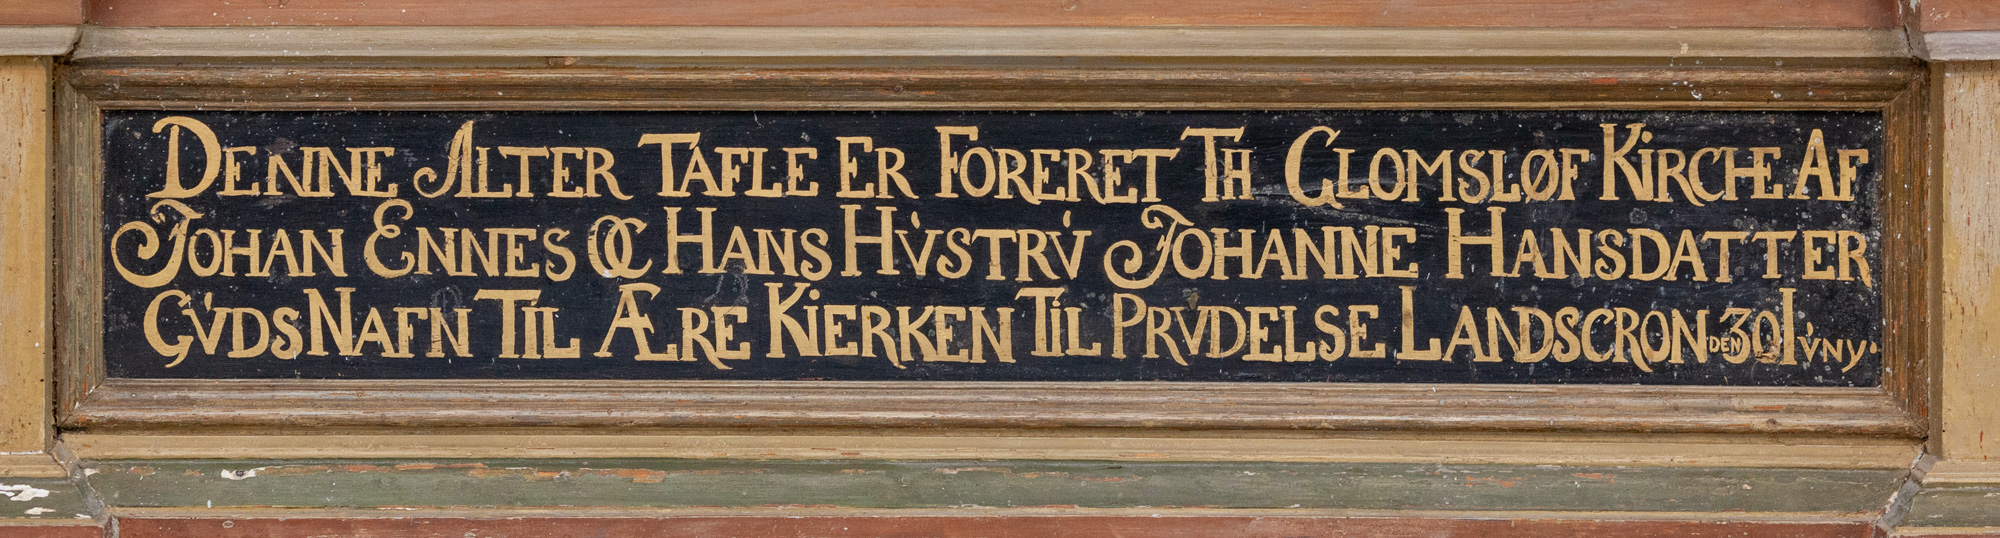 DENNE ALTER TAFLE ER FORERET TH GLOMSLØF KIRCHE AF
JOHAN ENNES OC HANS HUSTRU JOHANNE HANSDATTER
GUDS NAFN TIL ÆRE KIERKEN TIL PRVDELSE LANDSCRON DEN 30 IUNY.